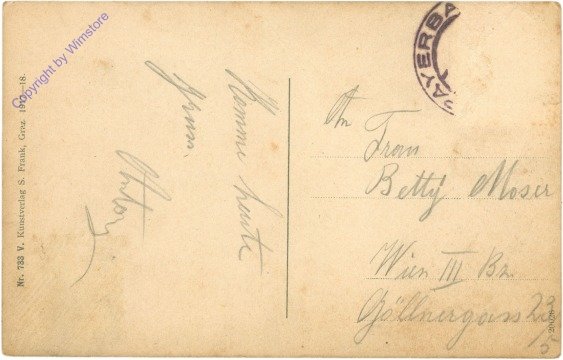 Copyright by Wimstore
Nr. 733 V. Kunstverlag S. Frank, Graz. 1917-18.
Komme heute
Gruss.
PAYERBA
An
Frau
Betty Moser
Wien III Bz.
Göllnergass 23
/5
20026